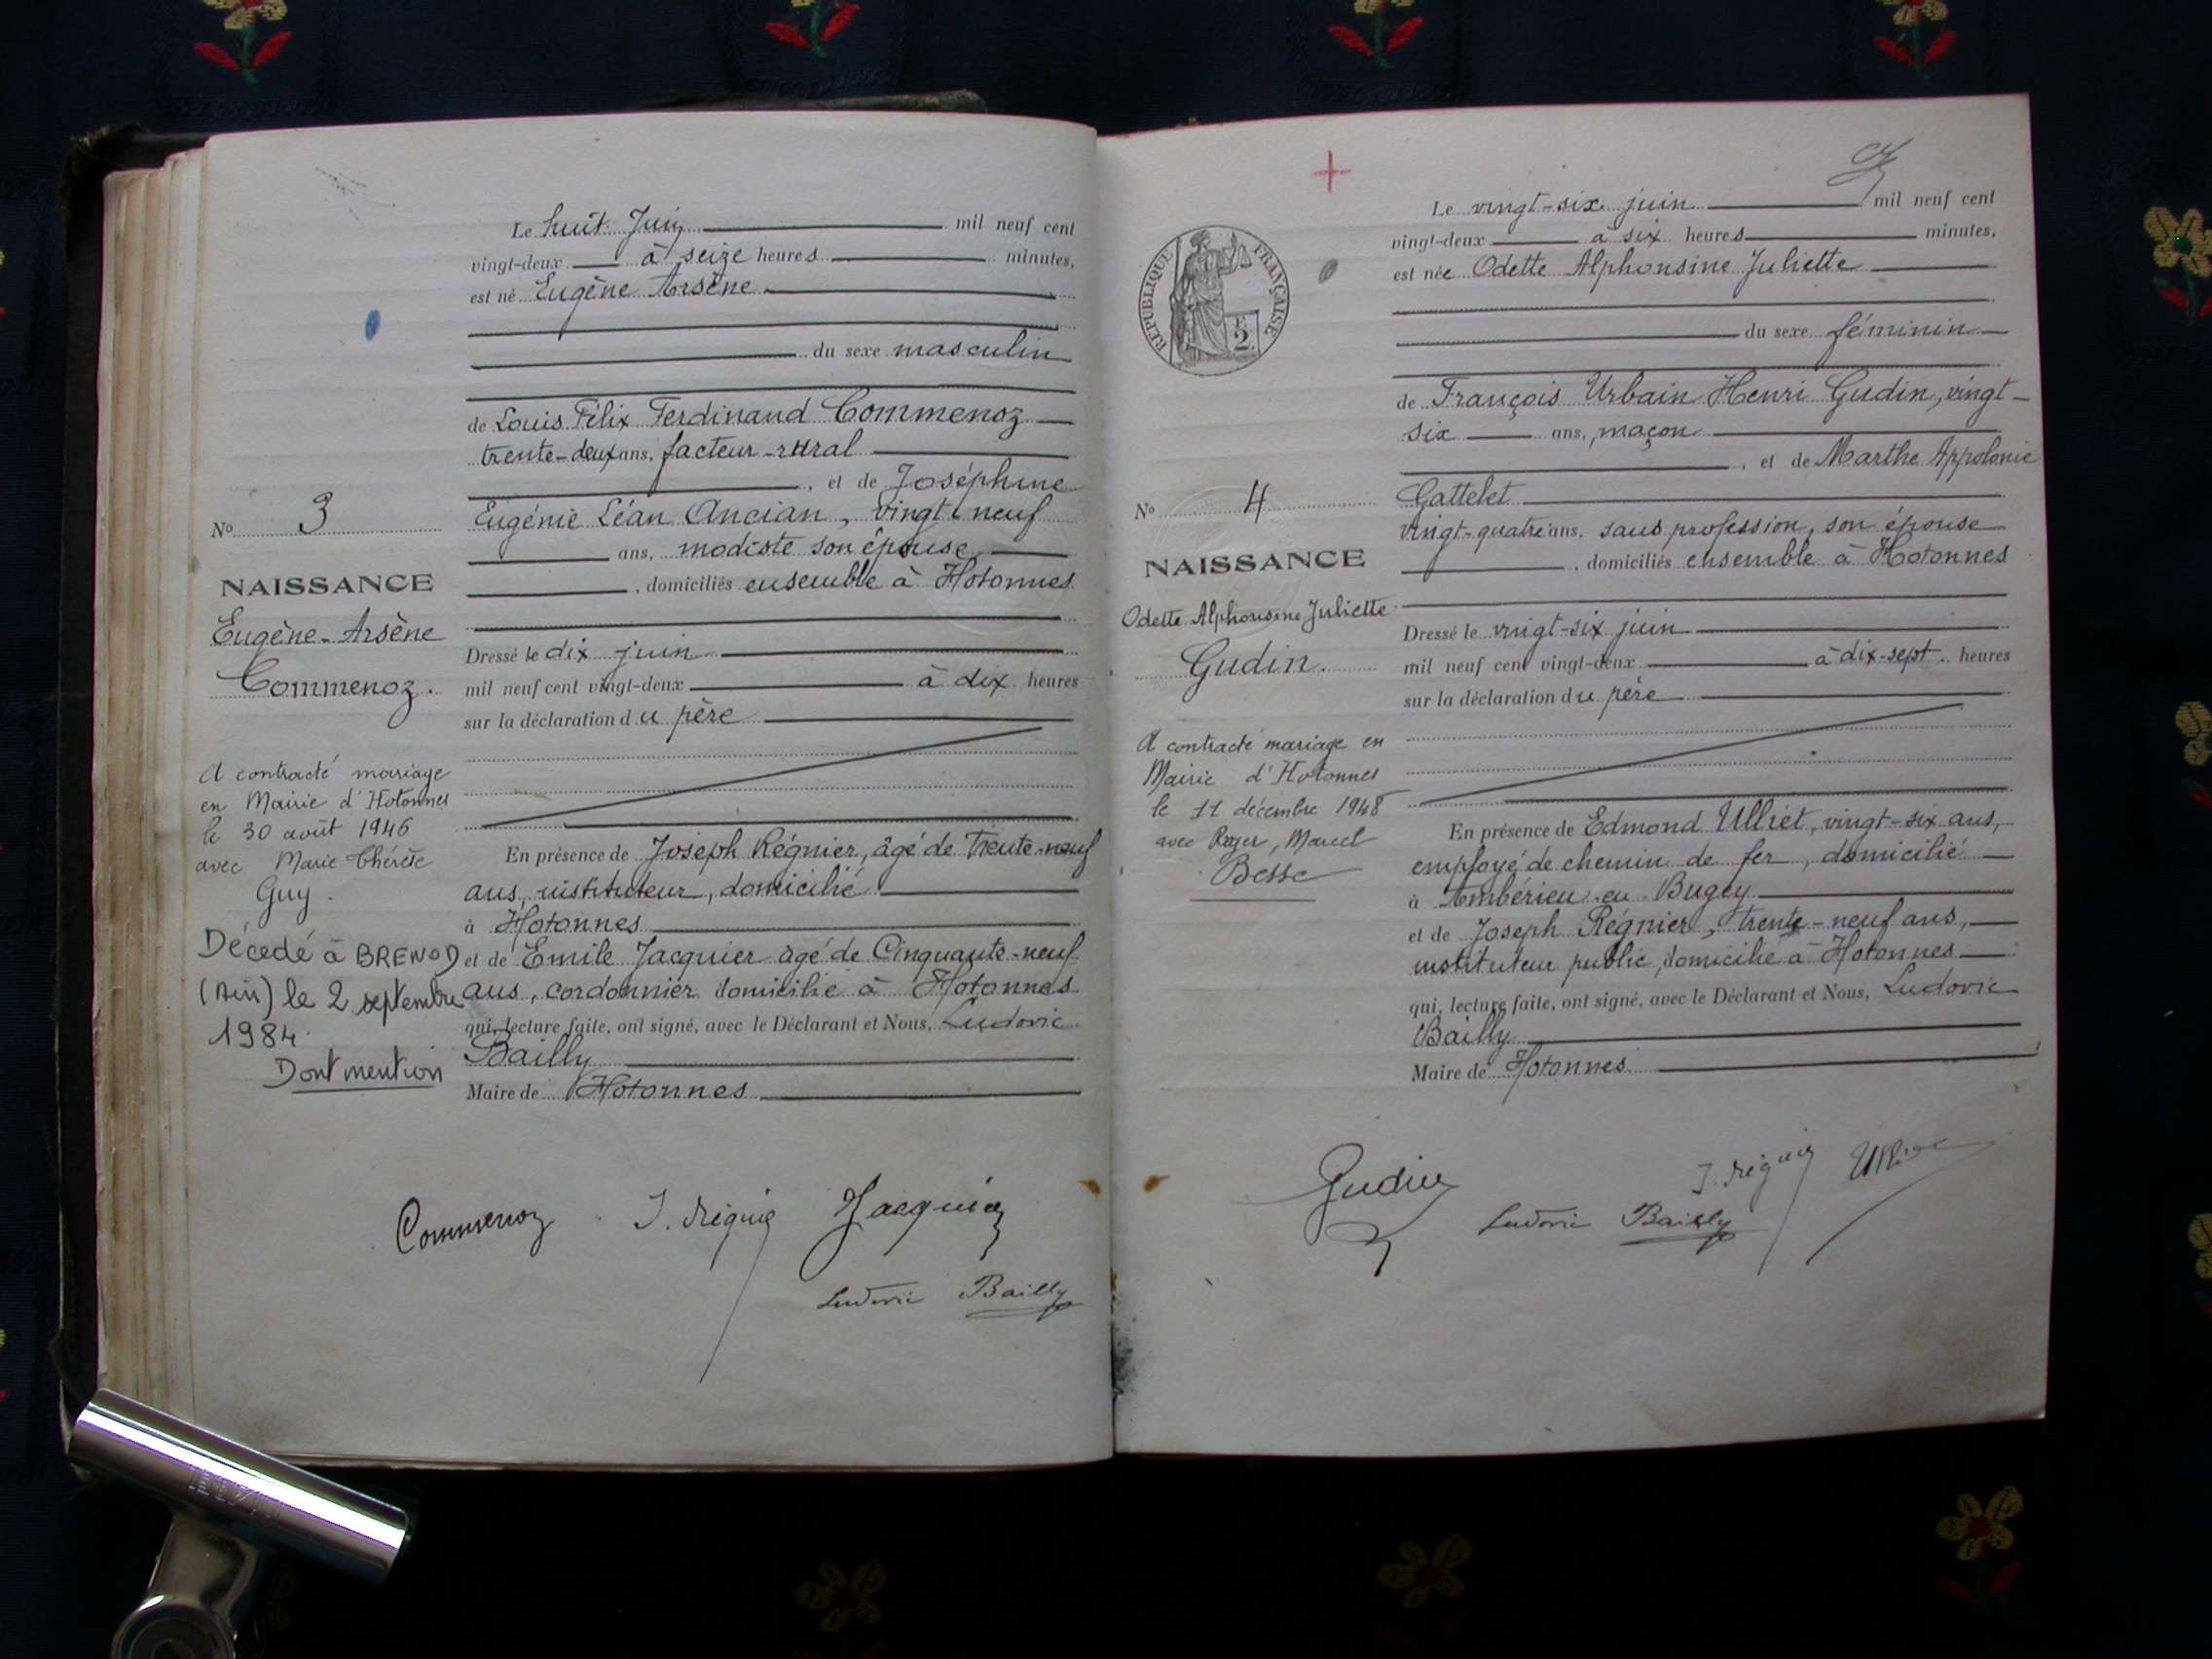 Le huit Juin mil neuf cent
vingt-deux à seize heures minutes,
est né Eugène Arsène
du sexe masculin
de Louis Félix Ferdinand Commenoz
trente-deux ans, facteur-rural
, et de Joséphine
Eugénie Léan Ancian, vingt neuf
ans, modiste son épouse,
, domiciliés ensemble à Hotonnes
Dressé le dix juin
mil neuf cent vingt-deux à dix heures
sur la déclaration du père
En présence de Joseph Régnier, âgé de Trente-neuf
ans, instituteur, domicilié
à Hotonnes
et de Emile Jacquier âgé de Cinquante-neuf
ans, cordonnier domicilié à Hotonnes
qui, lecture faite, ont signé, avec le Déclarant et Nous, Ludovic
Bailly
Maire de Hotonnes
No 3
NAISSANCE
Eugène-Arsène
Commenoz.
A contracté mariage
en Mairie d'Hotonnes
le 30 août 1946
avec Marie Thérèse
Guy.
Décedé à BRENOD
(Ain) le 2 septembre
1984.
Dont mention
Commenoz J. Régnier Jacquier
Ludovic Bailly
Le vingt-six juin mil neuf cent
vingt-deux à six heures minutes,
est née Odette Alphonsine Juliette
du sexe féminin
de François Urbain Henri Gudin, vingt-
six ans, maçon
, et de Marthe Appolonie
Gattelet
vingt-quatre ans, sans profession, son épouse
, domiciliés ensemble à Hotonnes
Dressé le vingt-six juin
mil neuf cent vingt-deux à dix-sept heures
sur la déclaration du père
En présence de Edmond Ulliet, vingt-six ans,
employé de chemin de fer, domicilié
à Ambérieu en Bugey
et de Joseph Régnier, trente-neuf ans,
instituteur public, domicilié à Hotonnes
qui, lecture faite, ont signé, avec le Déclarant et Nous, Ludovic
Bailly
Maire de Hotonnes
REPUBLIQUE FRANÇAISE
2 F.
No 4
NAISSANCE
Odette Alphonsine Juliette
Gudin.
A contracté mariage en
Mairie d'Hotonnes
le 11 décembre 1948
avec Roger, Marcel
Besse
Gudin J. Régnier Ulliet
Ludovic Bailly